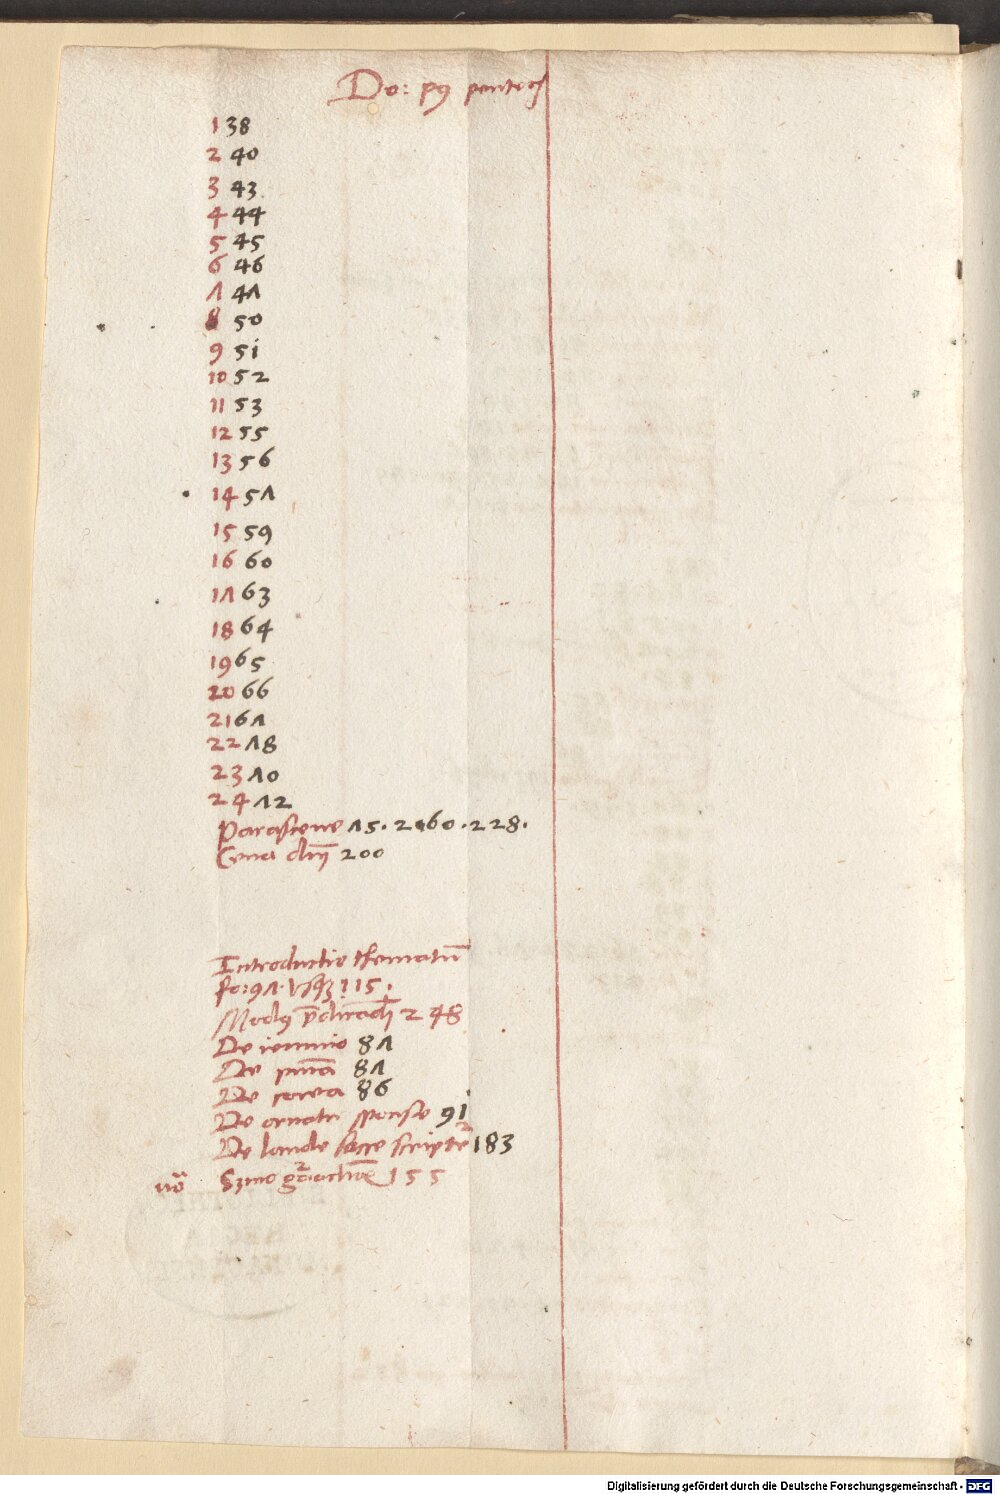 Do: p9 pentec
1 38
2 40
3 43
4 44
5 45
6 46
7 47
8 50
9 51
10 52
11 53
12 55
13 56
14 57
15 59
16 60
17 63
18 64
19 65
20 66
21 67
22 78
23 70
24 72
Parasceue 75. 260. 228.
Cena dnj 200
Introductio thematū
fo: 97. vsqꝫ 115.
Mod9 p̄dicādi 248
De ieiunio 87
De pnīa 87
De corea 86
De ornatu sponse 91
De laude sacre scripte 183
Sꝫmo 155
Digitalisierung gefördert durch die Deutsche Forschungsgemeinschaft - DFG